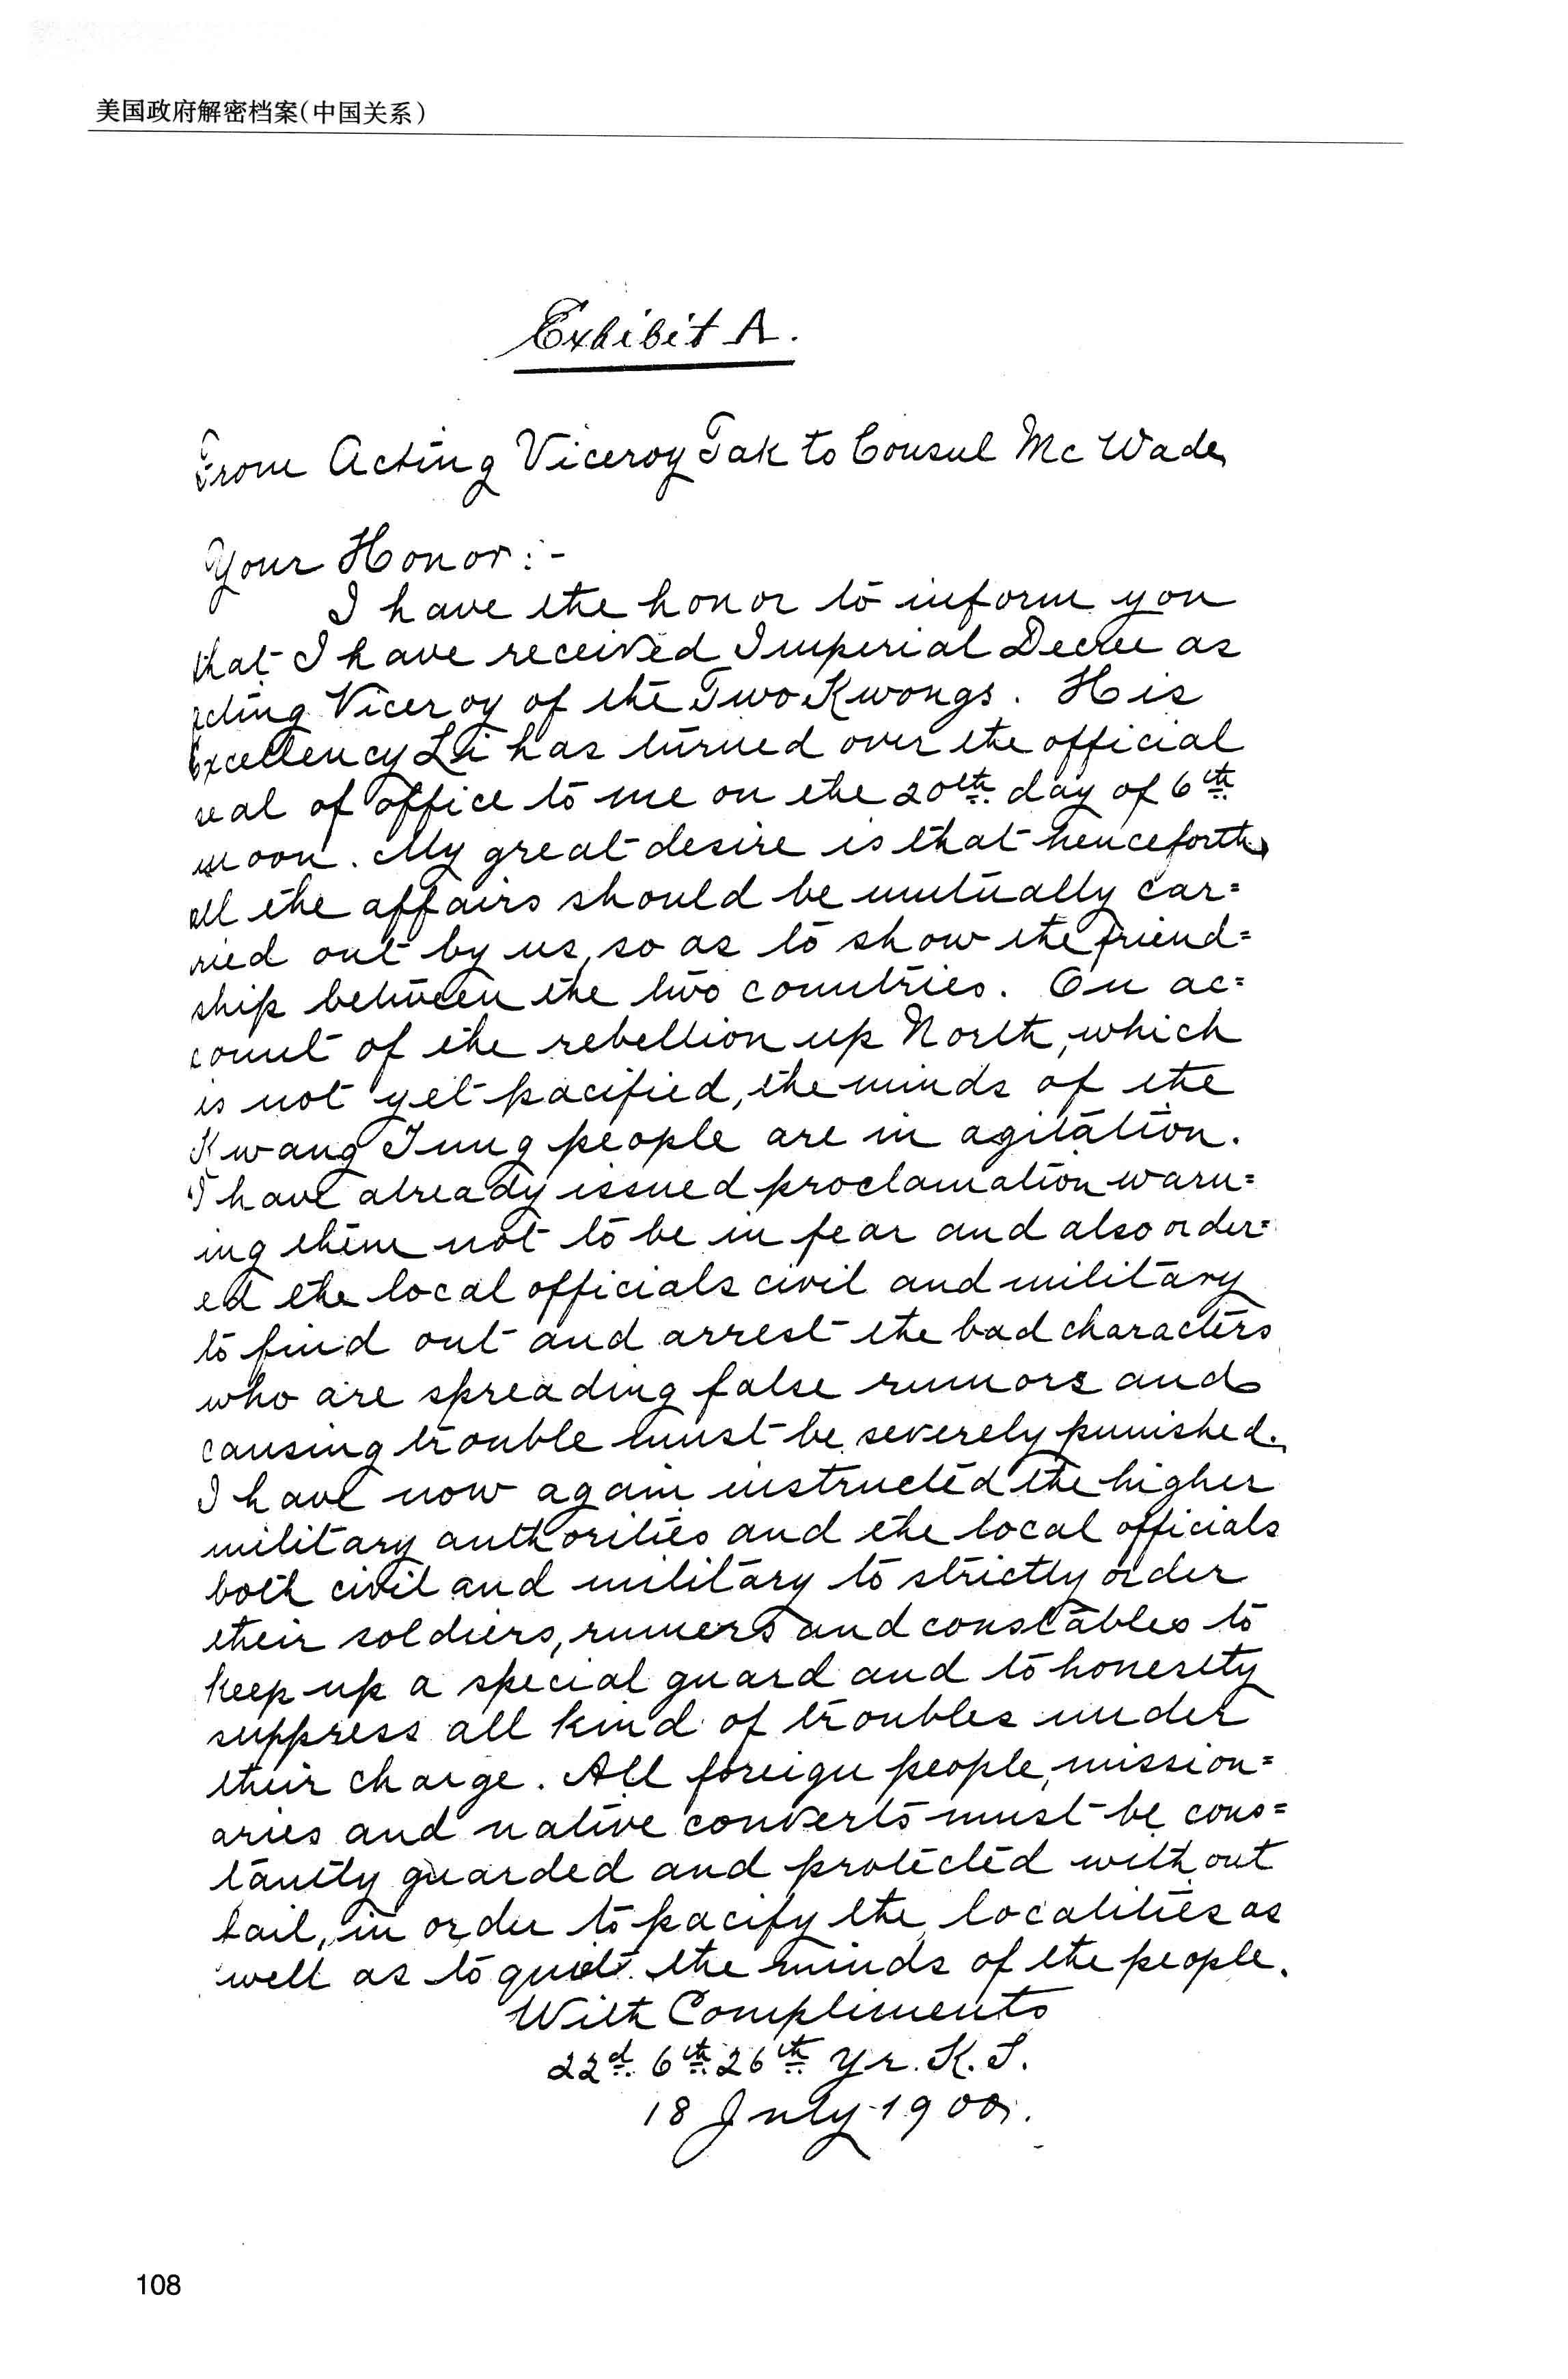 美国政府解密档案(中国关系)
Exhibit A.
From Acting Viceroy Tak to Consul Mc Wade
Your Honor:-
I have the honor to inform you
that I have received Imperial Decree as
acting Viceroy of the Two Kwongs. His
Excellency Li has turned over the official
seal of office to me on the 20th day of 6th
moon. My great desire is that henceforth
all the affairs should be mutually car=
ried out by us, so as to show the friend=
ship between the two countries. On ac=
count of the rebellion up North, which
is not yet pacified, the minds of the
Kwang Tung people are in agitation.
I have already issued proclamation warn=
ing them not to be in fear and also order=
ed the local officials civil and military
to find out and arrest the bad characters
who are spreading false rumors and
causing trouble must be severely punished.
I have now again instructed the higher
military authorities and the local officials
both civil and military to strictly order
their soldiers, runners and constables to
keep up a special guard and to honestly
suppress all kind of troubles under
their charge. All foreign people, mission=
aries and native converts must be cons=
tantly guarded and protected without
fail, in order to pacify the localities as
well as to quiet the minds of the people.
With Compliments
22d 6th 26th yr. K. S.
18 July 1900.
108